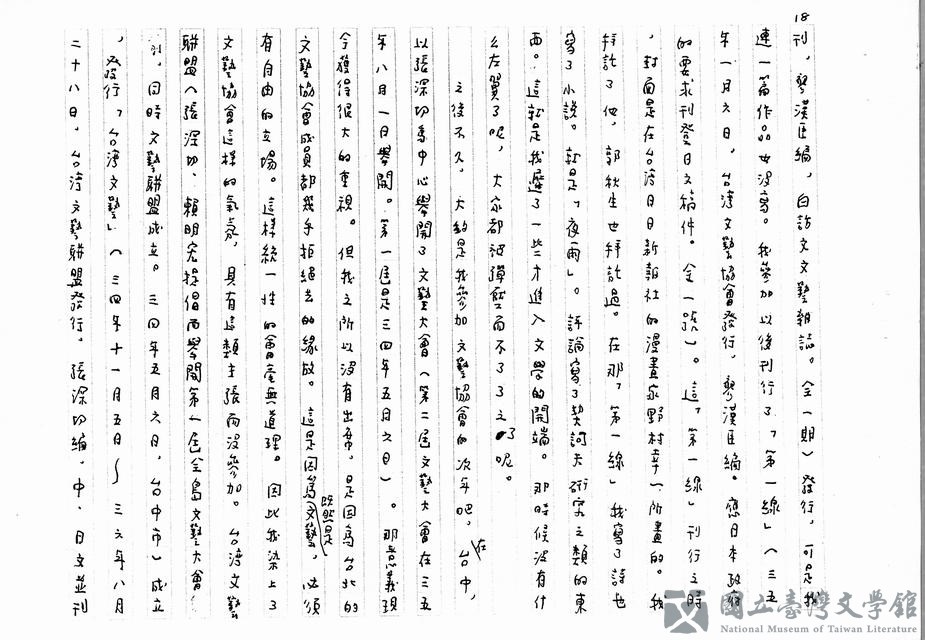 18
刊，廖漢臣編，白話文文藝雜誌。全一期）發行，可是我
連一篇作品也沒寫。我參加以後刊行了「第一線」（三五
年一月六日，台湾文藝協會發行，廖漢臣編。應日本政府
的要求刊登日文稿件。全一號）。這「第一線」刊行之時
，封面是在台湾日日新報社的漫畫家野村幸一所畫的。我
拜託了他，郭秋生也拜託過。在那「第一線」我寫了詩也
寫了小說。就是「夜雨」。評論寫了契訶夫研究之類的東
西。這就是我遲了一些才進入文學的開端。那時候沒有什
么左翼了呢，大家都被彈壓而不了了之了呢。
之後不久，大約是我參加文藝協會的次年吧，在台中，
以張深切為中心舉開了文藝大會（第二屆文藝大會在三五
年八月一日舉開。第一屆是三四年五月六日）。那意義現
今獲得很大的重視。但我之所以沒有出席，是因為台北的
文藝協會成員都幾乎拒絕去的緣故。這是因為既然是文藝，必須
有自由的立場。這樣統一性的會毫無道理。因此我染上了
文藝協會這樣的氣氛，具有這類主張而沒參加。台湾文藝
聯盟（張深切、賴明宏提倡而舉開第一屆全島文藝大會
，同時文藝聯盟成立。三四年五月六日，台中市）成立
，發行「台湾文藝」（三四年十一月五日～三六年八月
二十八日，台湾文藝聯盟發行。張深切編，中、日文並刊
國立臺灣文學館
National Museum of Taiwan Literature